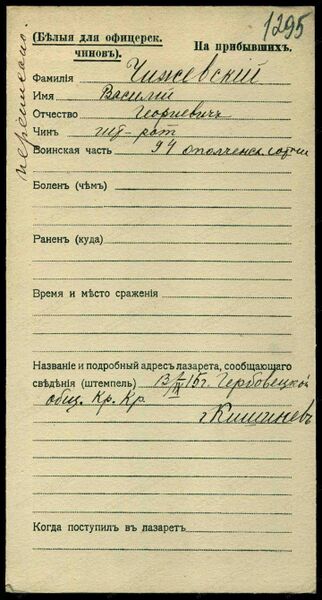 1295
(Бѣлыя для офицерск. чиновъ).
На прибывшихъ.
Фамилія Чижевскій
Имя Василій
Отчество Георгіевичъ
Чинъ шт-рот
Воинская часть 94 ополченск. сотни
Боленъ (чѣмъ)
Раненъ (куда)
Время и мѣсто сраженія
Названіе и подробный адресъ лазарета, сообщающаго
свѣдѣнія (штемпель) 15г. Гербовецкой
общ. Кр. Кр.
г Кишиневъ
Когда поступилъ въ лазаретъ